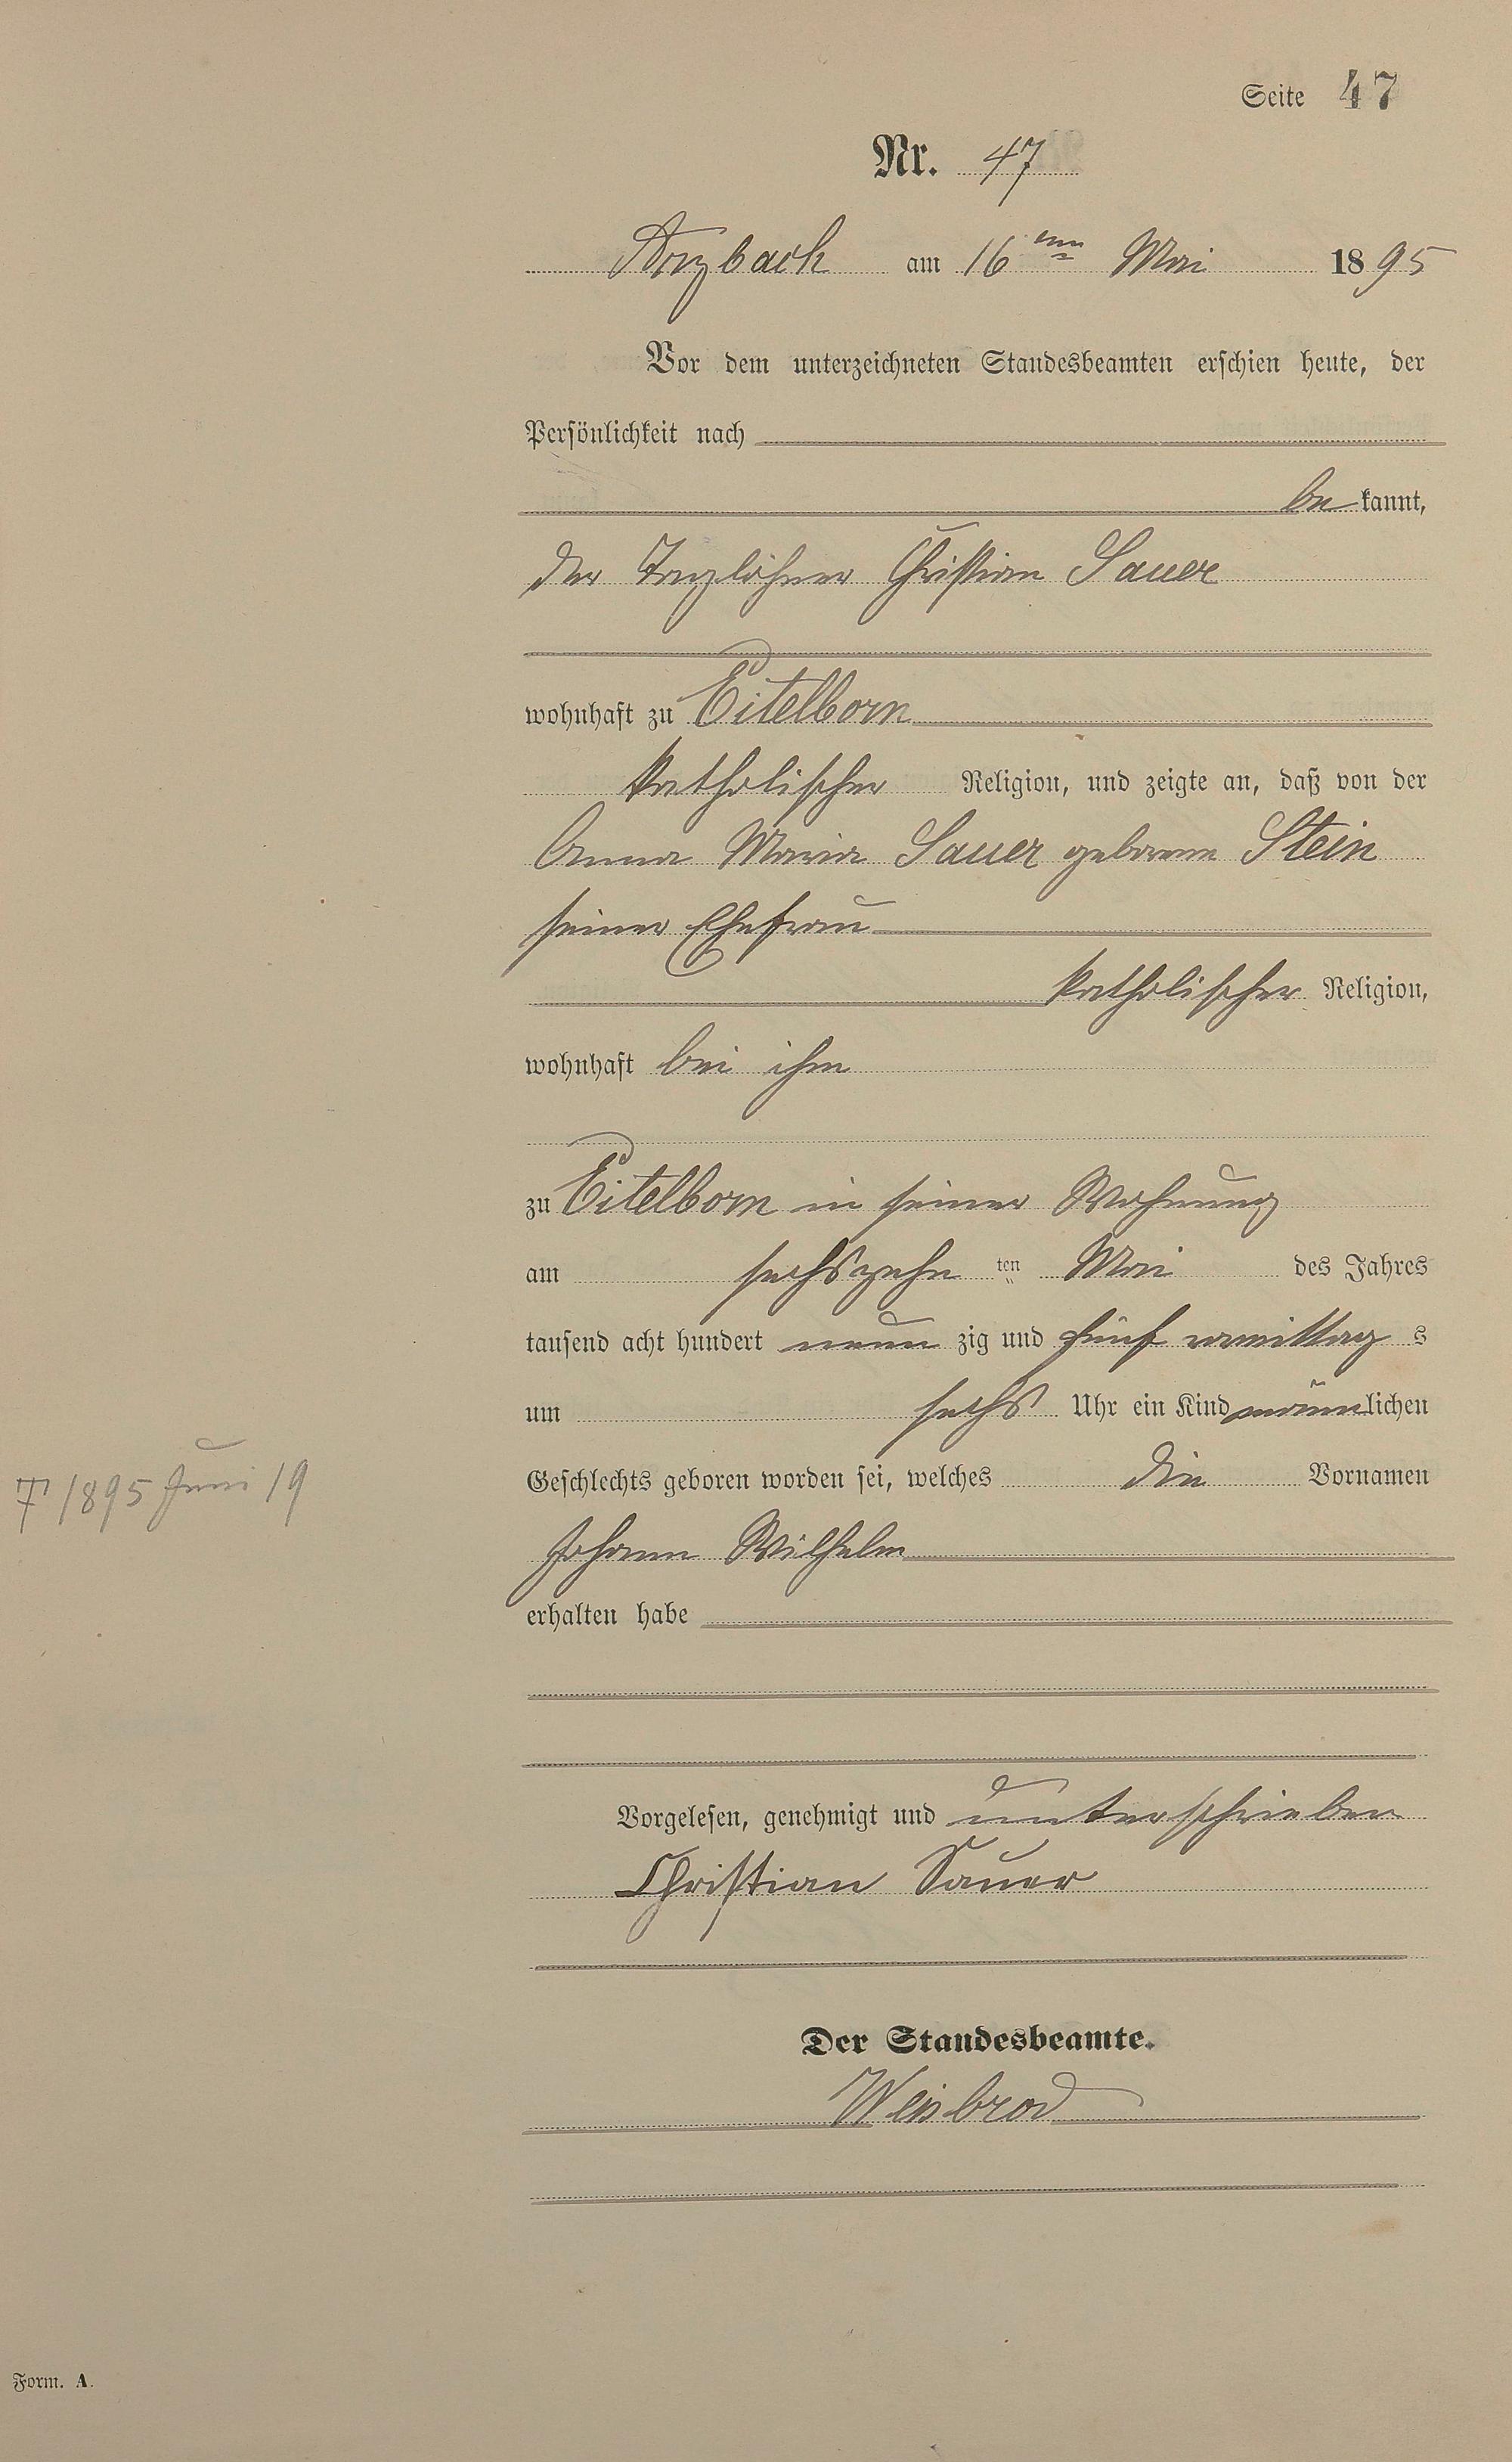 Seite 47
Nr. 47
Arzbach am 16ten Mai 1895
Vor dem unterzeichneten Standesbeamten erschien heute, der
Persönlichkeit nach
be kannt,
der Taglöhner Christian Sauer
wohnhaft zu Eitelborn
katholischer Religion, und zeigte an, daß von der
Anna Maria Sauer geborene Stein
seiner Ehefrau
katholischer Religion,
wohnhaft bei ihm
zu Eitelborn in seiner Wohnung
am sechszehn ten Mai des Jahres
tausend acht hundert neun zig und fünf vormittag s
um sechs Uhr ein Kind männlichen
Geschlechts geboren worden sei, welches die Vornamen
† 1895 Juni 19
Johann Wilhelm
erhalten habe
Vorgelesen, genehmigt und unterschrieben
Christian Sauer
Der Standesbeamte.
Weisbrod
Form. A.